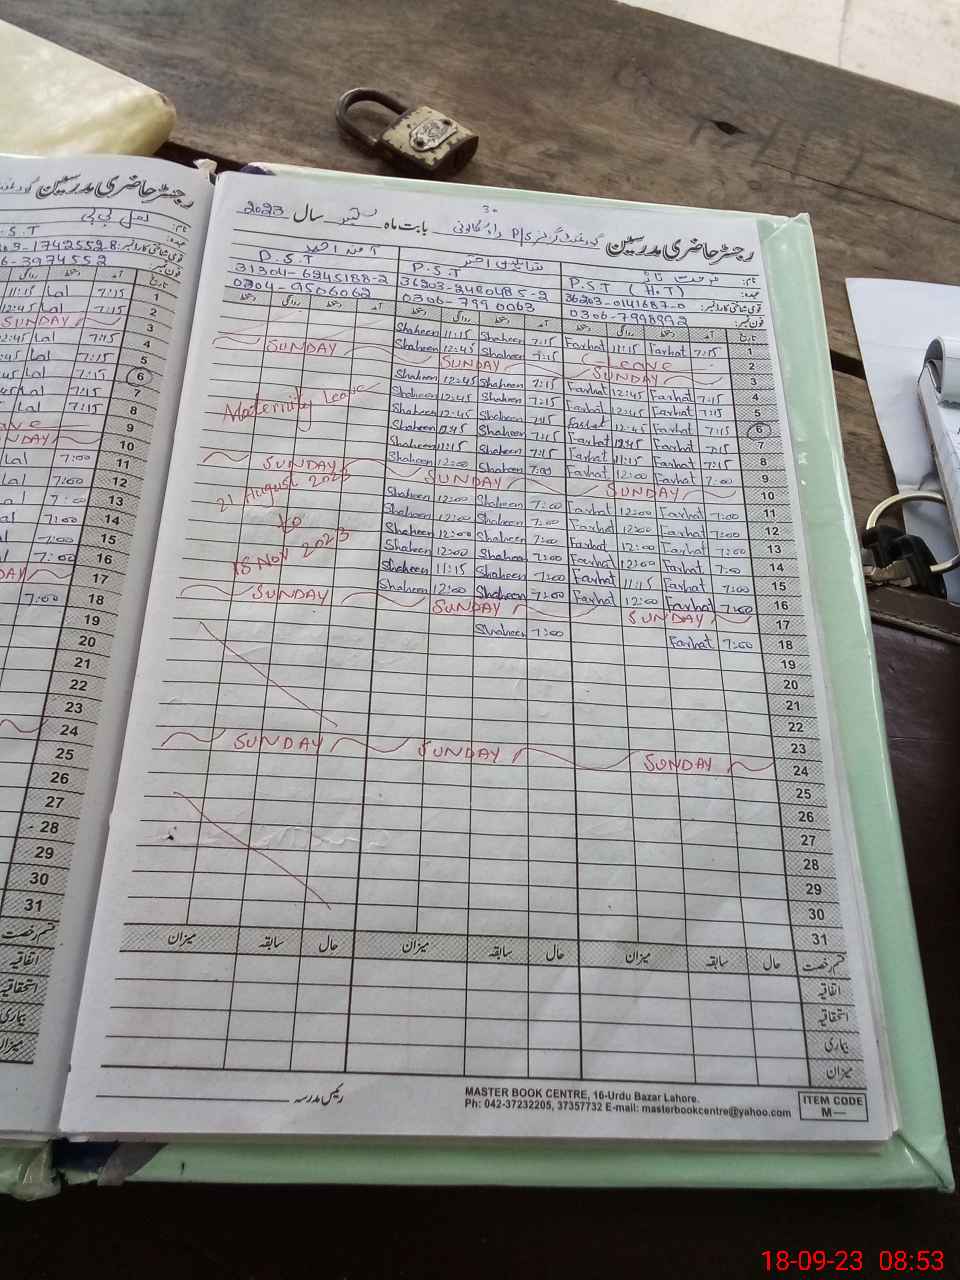 رجسٹر حاضری مدرسین
بابت ماہ ستمبر سال 2023
نام: فرحت ناز
شاہین اختر
آمنہ احمد
عہدہ: P.S.T (H.T)
P.S.T
P.S.T
قومی شناختی کارڈ نمبر: 36203-0141687-0
36203-2480485-2
31304-6245188-2
فون نمبر: 0306-7998972
0306-799 0063
0304-9506062
تاریخ آمد دستخط روانگی دستخط آمد دستخط روانگی دستخط آمد دستخط روانگی دستخط
1 7:15 Farhat 11:15 Farhat 7:15 Shaheen 11:15 Shaheen
2 Leave 7:15 Shaheen 12:45 Shaheen
3 SUNDAY SUNDAY SUNDAY
4 7:15 Farhat 12:45 Farhat 7:15 Shaheen 12:45 Shaheen
5 7:15 Farhat 12:45 Farhat 7:15 Shaheen 12:45 Shaheen
6 7:15 Farhat 12:45 Farhat 7:15 Shaheen 12:45 Shaheen
7 7:15 Farhat 12:45 Farhat 7:15 Shaheen 12:45 Shaheen
8 7:15 Farhat 11:15 Farhat 7:15 Shaheen 11:15 Shaheen
9 7:00 Farhat 12:00 Farhat 7:00 Shaheen 12:00 Shaheen
10 SUNDAY SUNDAY SUNDAY
11 7:00 Farhat 12:00 Farhat 7:00 Shaheen 12:00 Shaheen
12 7:00 Farhat 12:00 Farhat 7:00 Shaheen 12:00 Shaheen
13 7:00 Farhat 12:00 Farhat 7:00 Shaheen 12:00 Shaheen
14 7:00 Farhat 12:00 Farhat 7:00 Shaheen 12:00 Shaheen
15 7:00 Farhat 11:15 Farhat 7:00 Shaheen 11:15 Shaheen
16 7:00 Farhat 12:00 Farhat 7:00 Shaheen 12:00 Shaheen
17 SUNDAY SUNDAY SUNDAY
18 7:00 Farhat 7:00 Shaheen
19
20
21
22
23
24 SUNDAY SUNDAY SUNDAY
25
26
27
28
29
30
31
Maternity Leave
21 August 2023
to
18 Nov 2023
قسم رخصت حال سابقہ میزان حال سابقہ میزان حال سابقہ میزان
اتفاقیہ
استحقاقیہ
بیماری
میزان
رئیس مدرسہ
MASTER BOOK CENTRE, 16-Urdu Bazar Lahore.
Ph: 042-37232205, 37357732 E-mail: masterbookcentre@yahoo.com
ITEM CODE
M—
رجسٹر حاضری مدرسین
نام: لعل بی بی
عہدہ: S.T
قومی شناختی کارڈ نمبر: 203-1742552-8
فون نمبر: 6-3974552
تاریخ آمد دستخط روانگی
1 7:15 Lal 11:15
2 7:15 Lal 12:45
3 SUNDAY
4 7:15 Lal 2:45
5 7:15 Lal
6 7:15 Lal 45
7 7:15 Lal
8 7:15 Lal
9
10 NDAY
11 7:00 Lal
12 7:00 Lal
13 7:00 Lal
14 7:00
15 7:00
16 7:00
17 DAY
18 7:00
19
20
21
22
23
24
25
26
27
28
29
30
31
قسم رخصت
اتفاقیہ
استحقاقیہ
بیماری
میزان
18-09-23 08:53